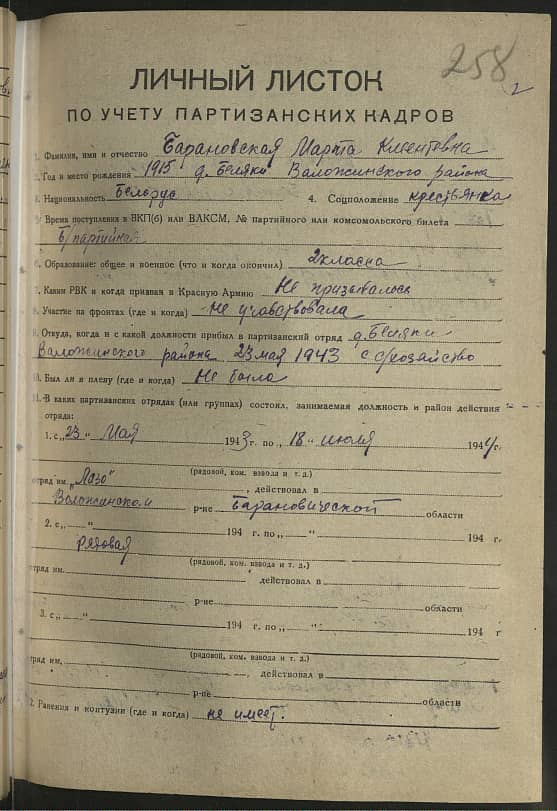 258
2
ЛИЧНЫЙ ЛИСТОК
ПО УЧЕТУ ПАРТИЗАНСКИХ КАДРОВ
1. Фамилия, имя и отчество Барановская Марта
2. Год и место рождения 1915 д. Беляки Валожинского района
3. Национальность Белорус 4. Соцположение крестьянка
5. Время поступления в ВКП(б) или ВЛКСМ, № партийного или комсомольского билета
Б/партийная
6. Образование: общее и военное (что и когда окончил) 2 класна
7. Каким РВК и когда призван в Красную Армию Не призывалось
8. Участие на фронтах (где и когда) Не учавствовала
9. Откуда, когда и с какой должности прибыл в партизанский отряд д. Беляки
Валожинского района 23 мая 1943 с с/хозайство
10. Был ли в плену (где и когда) Не была
11. В каких партизанских отрядах (или группах) состоял, занимаемая должность и район действия
отряда:
1. с „23" Мая 1943 г. по „18" июля 1944 г.
(рядовой, ком. взвода и т. д.)
отряд им. „Лазо", действовал в
Воложинском р-не Барановической области
2. с „ " 194 г. по „ " 194 г
Рядовая
(рядовой, ком. взвода и т. д.)
отряд им. , действовал в
р-не области
3. с „ " 194 г. по „ " 194 г
(рядовой, ком. взвода и т. д.)
отряд им. , действовал в
р-не области
12. Ранения и контузии (где и когда) не имеет.